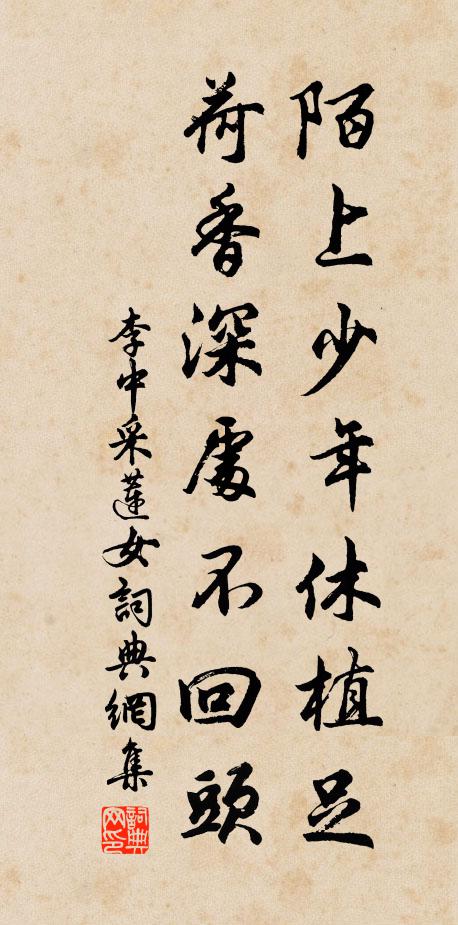 陌上少年休植足
荷香深處不回頭
李中采蓮女詞典網集
詞典網印